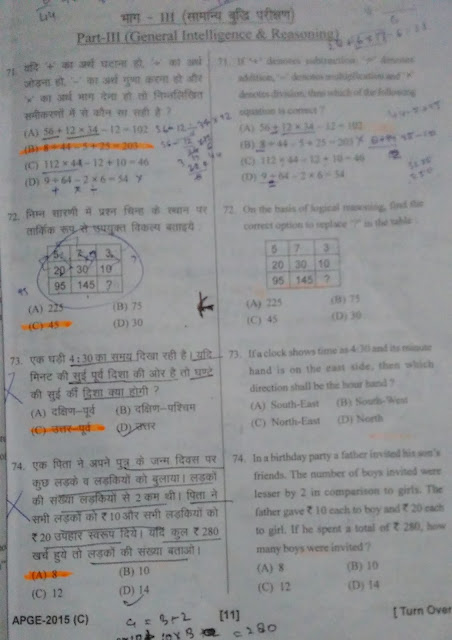 भाग - III (सामान्य बुद्धि परीक्षण)
Part-III (General Intelligence & Reasoning)
71. यदि '+' का अर्थ घटाना हो, '÷' का अर्थ
जोड़ना हो, '–' का अर्थ गुणा करना हो और
'×' का अर्थ भाग देना हो तो निम्नलिखित
समीकरणों में से कौन सा सही है ?
(A) 56 + 12 × 34 – 12 = 102
(B) 8 ÷ 44 – 5 + 25 = 203
(C) 112 × 44 – 12 + 10 = 46
(D) 9 ÷ 64 – 2 × 6 = 54
72. निम्न सारणी में प्रश्न चिन्ह के स्थान पर
तार्किक रूप से उपयुक्त विकल्प बताइये :
5 7 3
20 30 10
95 145 ?
(A) 225 (B) 75
(C) 45 (D) 30
73. एक घड़ी 4:30 का समय दिखा रही है। यदि
मिनट की सुई पूर्व दिशा की ओर है तो घण्टे
की सुई की दिशा क्या होगी ?
(A) दक्षिण–पूर्व (B) दक्षिण–पश्चिम
(C) उत्तर–पूर्व (D) उत्तर
74. एक पिता ने अपने पुत्र के जन्म दिवस पर
कुछ लड़के व लड़कियों को बुलाया। लड़कों
की संख्या लड़कियों से 2 कम थी। पिता ने
सभी लड़कों को ₹ 10 और सभी लड़कियों को
₹ 20 उपहार स्वरूप दिये। यदि कुल ₹ 280
खर्च हुये तो लड़कों की संख्या बताओ।
(A) 8 (B) 10
(C) 12 (D) 14
71. If '+' denotes subtraction, '÷' denotes
addition, '–' denotes multiplication and '×'
denotes division, then which of the following
equation is correct ?
(A) 56 + 12 × 34 – 12 = 102
(B) 8 ÷ 44 – 5 + 25 = 203
(C) 112 ÷ 44 – 12 + 10 = 46
(D) 9 ÷ 64 – 2 × 6 = 54
72. On the basis of logical reasoning, find the
correct option to replace '?' in the table :
5 7 3
20 30 10
95 145 ?
(A) 225 (B) 75
(C) 45 (D) 30
73. If a clock shows time as 4:30 and its minute
hand is on the east side, then which
direction shall be the hour hand ?
(A) South-East (B) South-West
(C) North-East (D) North
74. In a birthday party a father invited his son's
friends. The number of boys invited were
lesser by 2 in comparison to girls. The
father gave ₹ 10 each to boy and ₹ 20 each
to girl. If he spent a total of ₹ 280, how
many boys were invited ?
(A) 8 (B) 10
(C) 12 (D) 14
APGE-2015 (C) [11] [ Turn Over